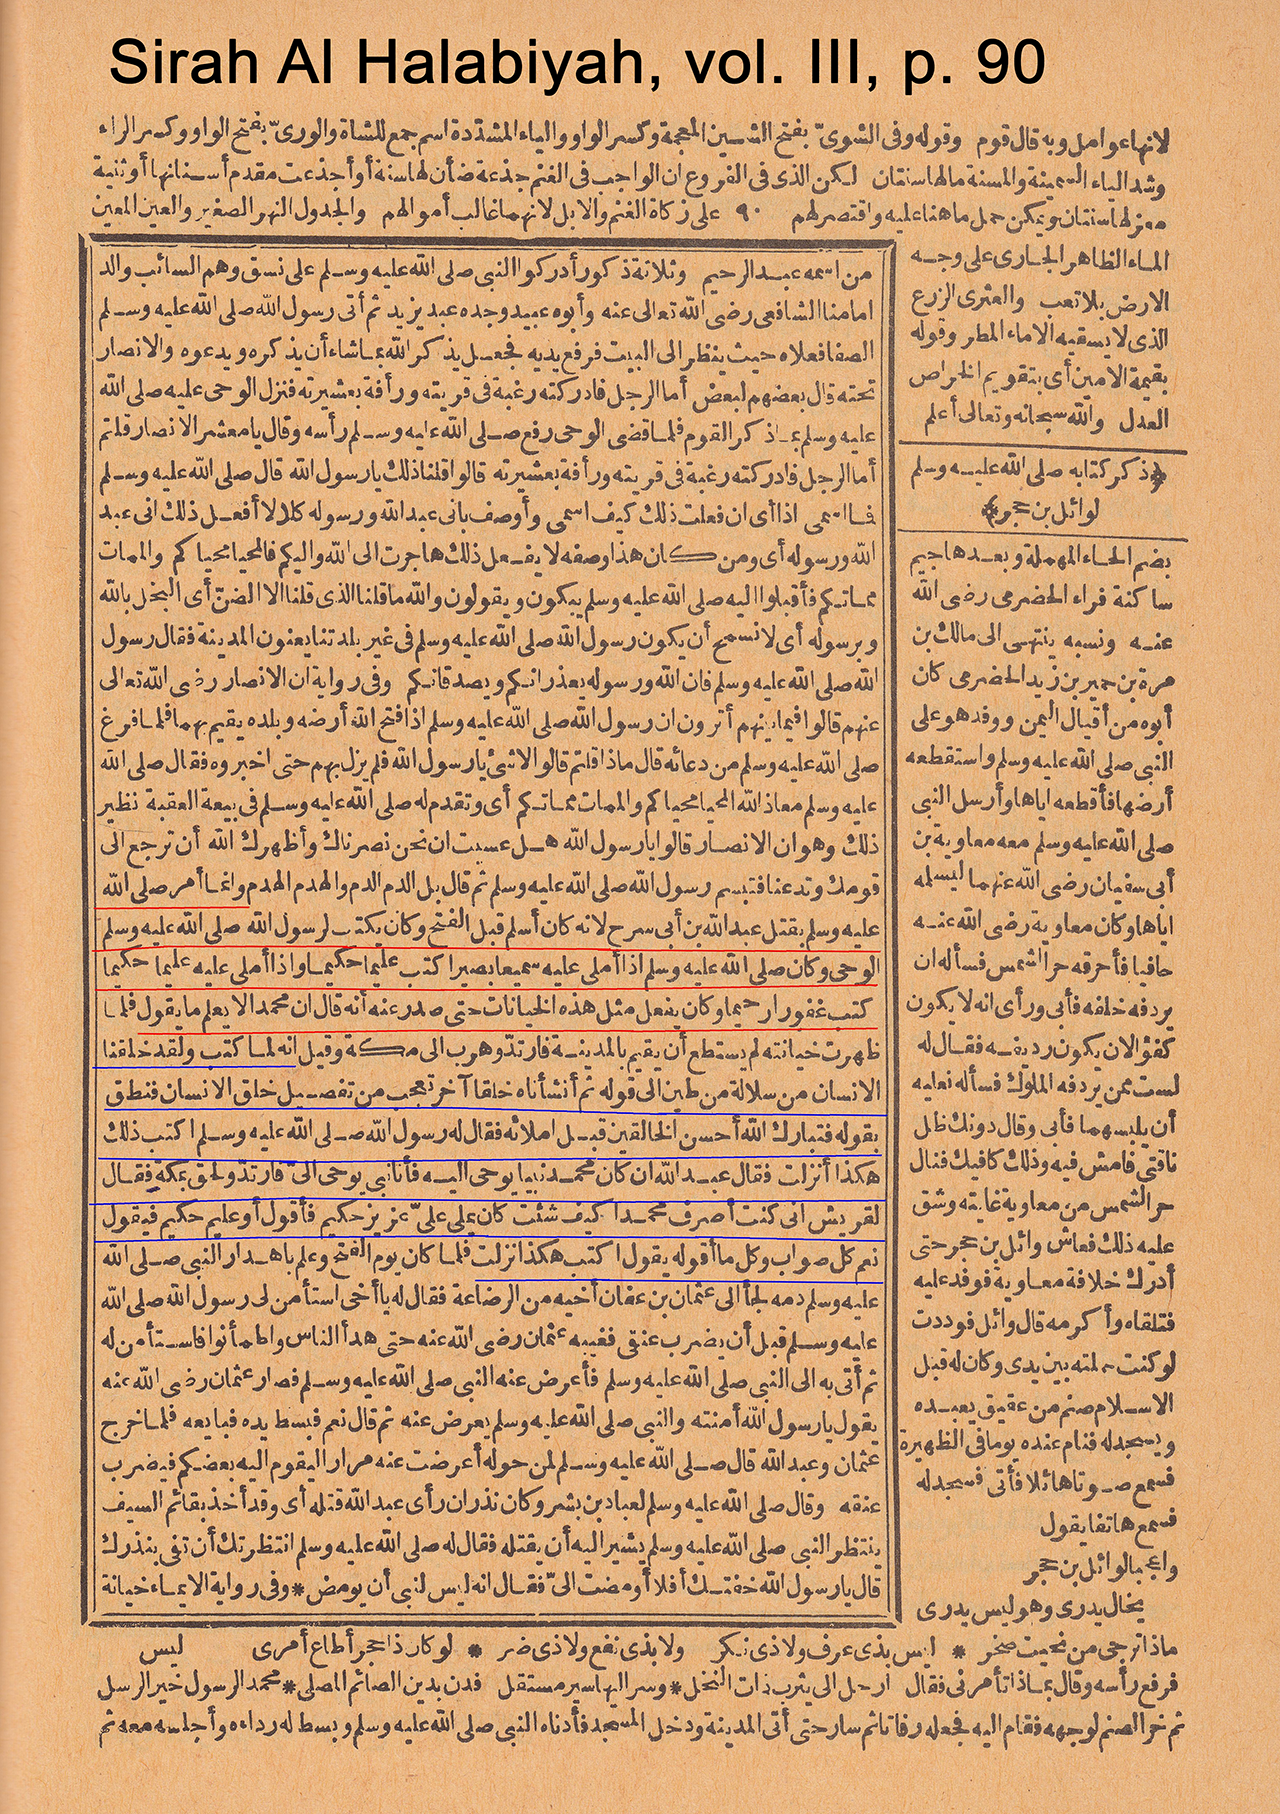 Sirah Al Halabiyah, vol. III, p. 90
لانها عوامل وبه قال قوم وقوله وفى الشوىّ بفتح الشين المعجمة وكسر الواو والياء المشدّدة اسم جمع للشاة والورىّ بفتح الواو وكسر الراء
وشد الياء السمينة والمسنة مالها سنتان لكن الذى فى الفروع ان الواجب فى الغنم جذعة ضأن لها سنة أو أجذعت مقدم أسنانها أو ثنية
معز لها سنتان ويمكن حمل ما هنا عليه واقتصر لهم ٩٠ على زكاة الغنم والابل لانهما غالب أموالهم والجدول النهر الصغير والعين المعين
الماء الظاهر الجارى على وجه
الارض بلا تعب والعثرى الزرع
الذى لا يسقيه الا ماء المطر وقوله
بقيمة الامين أى بتقويم الخراص
العدل والله سبحانه وتعالى أعلم
﴿ذكر كتابه صلى الله عليه وسلم
لوائل بن حجر﴾
بضم الحاء المهملة وبعدها جيم
ساكنة فراء الحضرمى رضى الله
عنه ونسبه ينتهى الى مالك بن
مرة بن حمير بن زيد الحضرمى كان
أبوه من أقيال اليمن ووفد هو على
النبى صلى الله عليه وسلم واستقطعه
أرضها فأقطعه اياها وأرسل النبى
صلى الله عليه وسلم معه معاوية بن
أبى سفيان رضى الله عنهما ليسلمه
اياها وكان معاوية رضى الله عنه
حافيا فأحرقه حر الشمس فسأله ان
يردفه خلفه فأبى ورأى انه لا يكون
كفؤا لان يكون رديفه فقال له
لست ممن يردفه الملوك فسأله نعليه
أن يلبسهما فأبى وقال دونك ظل
ناقتى فامش فيه وذلك كافيك فنال
حر الشمس من معاوية غايته وشق
عليه ذلك فعاش وائل بن حجر حتى
أدرك خلافة معاوية فوفد عليه
فتلقاه وأكرمه قال وائل فوددت
لو كنت حملته بين يدى وكان له قبل
الاسلام صنم من عقيق يعبده
ويسجد له فنام عنده يوما فى الظهيرة
فسمع صوتا هائلا فأتى فسجد له
فسمع هاتفا يقول
واعجبا لوائل بن حجر
يخال يدرى وهو ليس يدرى
من اسمه عبد الرحيم وثلاثة ذكور أدركوا النبى صلى الله عليه وسلم على نسق وهم السائب والد
امامنا الشافعى رضى الله تعالى عنه وأبوه عبيد وجده عبد يزيد ثم أتى رسول الله صلى الله عليه وسلم
الصفا فعلاه حيث ينظر الى البيت فرفع يديه فجعل يذكر الله بما شاء أن يذكره ويدعوه والانصار
تحته قال بعضهم لبعض أما الرجل فادركته رغبة فى قريته ورأفة بعشيرته فنزل الوحى عليه صلى الله
عليه وسلم بما ذكر القوم فلما قضى الوحى رفع صلى الله عليه وسلم رأسه وقال يا معشر الانصار قلتم
أما الرجل فادركته رغبة فى قريته ورأفة بعشيرته قالوا قلنا ذلك يا رسول الله قال صلى الله عليه وسلم
فما اسمى اذا أى ان فعلت ذلك كيف اسمى وأوصف بانى عبد الله ورسوله كلا لا أفعل ذلك انى عبد
الله ورسوله أى ومن كان هذا وصفه لا يفعل ذلك هاجرت الى الله واليكم فالمحيا محياكم والممات
مماتكم فأقبلوا اليه صلى الله عليه وسلم يبكون ويقولون والله ما قلنا الذى قلنا الا الضنّ أى البخل بالله
وبرسوله أى لا نسمح أن يكون رسول الله صلى الله عليه وسلم فى غير بلدتنا يعنون المدينة فقال رسول
الله صلى الله عليه وسلم فان الله ورسوله يعذرانكم ويصدقانكم وفى رواية ان الانصار رضى الله تعالى
عنهم قالوا فيما بينهم أترون ان رسول الله صلى الله عليه وسلم اذا فتح الله أرضه وبلده يقيم بهما فلما فرغ
صلى الله عليه وسلم من دعائه قال ماذا قلتم قالوا لا شئ يا رسول الله فلم يزل بهم حتى اخبروه فقال صلى الله
عليه وسلم معاذ الله المحيا محياكم والممات مماتكم أى وتقدم له صلى الله عليه وسلم فى بيعة العقبة نظير
ذلك وهو ان الانصار قالوا يا رسول الله هل عسيت ان نحن نصرناك وأظهرك الله أن ترجع الى
قومك وتدعنا فتبسم رسول الله صلى الله عليه وسلم ثم قال بل الدم الدم والهدم الهدم وانما أمر صلى الله
عليه وسلم بقتل عبد الله بن أبى سرح لانه كان أسلم قبل الفتح وكان يكتب لرسول الله صلى الله عليه وسلم
الوحى وكان صلى الله عليه وسلم اذا أملى عليه سميعا بصيرا كتب عليما حكيما واذا أملى عليه عليما حكيما
كتب غفورا رحيما وكان يفعل مثل هذه الخيانات حتى صدر عنه أنه قال ان محمدا لا يعلم ما يقول فلما
ظهرت خيانته لم يستطع أن يقيم بالمدينة فارتدّ وهرب الى مكة وقيل انه لما كتب ولقد خلقنا
الانسان من سلالة من طين الى قوله ثم أنشأناه خلقا آخر تعجب من تفصيل خلق الانسان فنطق
بقوله فتبارك الله أحسن الخالقين قبل املائه فقال له رسول الله صلى الله عليه وسلم اكتب ذلك
هكذا أنزلت فقال عبد الله ان كان محمد نبيا يوحى اليه فأنا نبى يوحى الىّ فارتدّ ولحق بمكة فقال
لقريش انى كنت أصرف محمدا كيف شئت كان يملى علىّ عزيز حكيم فأقول أو عليم حكيم فيقول
نعم كل صواب وكل ما أقوله يقول اكتب هكذا نزلت فلما كان يوم الفتح وعلم باهدار النبى صلى الله
عليه وسلم دمه لجأ الى عثمان بن عفان أخيه من الرضاعة فقال له يا أخى استأمن لى رسول الله صلى الله
عليه وسلم قبل أن يضرب عنقى فغيبه عثمان رضى الله عنه حتى هدأ الناس واطمأنوا فاستأمن له
ثم أتى به الى النبى صلى الله عليه وسلم فأعرض عنه النبى صلى الله عليه وسلم فصار عثمان رضى الله عنه
يقول يا رسول الله أمنته والنبى صلى الله عليه وسلم يعرض عنه ثم قال نعم فبسط يده فبايعه فلما خرج
عثمان وعبد الله قال صلى الله عليه وسلم لمن حوله أعرضت عنه مرارا ليقوم اليه بعضكم فيضرب
عنقه وقال صلى الله عليه وسلم لعباد بن بشر وكان نذر ان رأى عبد الله قتله أى وقد أخذ بقائم السيف
ينتظر النبى صلى الله عليه وسلم يشير اليه أن يقتله فقال له صلى الله عليه وسلم انتظرتك أن تفى بنذرك
قال يا رسول الله خفتك أفلا أومضت الىّ فقال انه ليس لنبى أن يومض * وفى رواية الايماء خيانة
ماذا ترجى من نحيت صخر * ليس بذى عرف ولا ذى نكر ولا بذى نفع ولا ذى ضر * لو كان ذا حجر أطاع أمرى ليس
فرفع رأسه وقال بماذا تأمرنى فقال ارحل الى يثرب ذات النخل * وسر اليها سير مستقل فدن بدين الصائم المصلى * محمد الرسول خير الرسل
ثم خر الصنم لوجهه فقام اليه فجعله رفاتا ثم سار حتى أتى المدينة ودخل المسجد فأدناه النبى صلى الله عليه وسلم وبسط له رداءه وأجلسه معه ثم